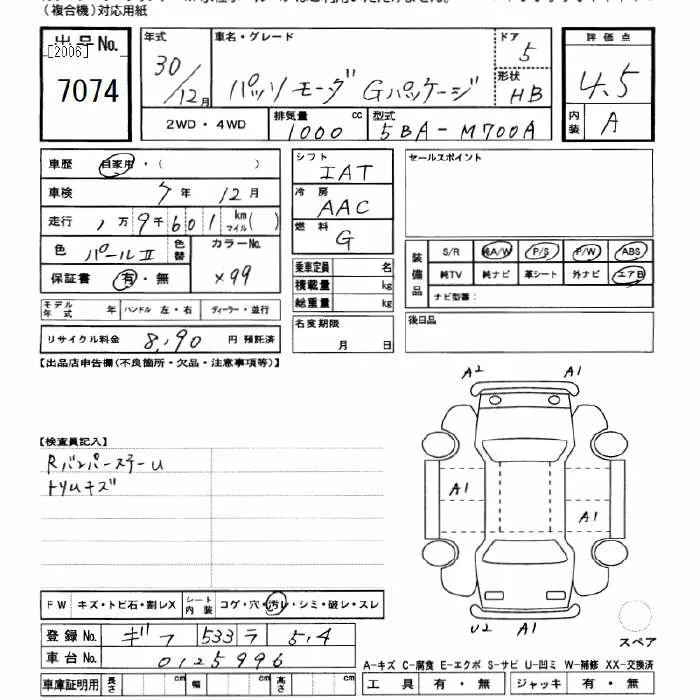 (複合機)対応用紙
出品No.
[2006]
7074
年式 車名・グレード ドア
30/12月 パッソ モーダ Gパッケージ 5
形状 HB
2WD・4WD 排気量 1000 cc 型式 5BA-M700A
評価点
4.5
内装 A
車歴 自家用・( )
車検 7年 12月
走行 1万9千601 km マイル( )
色 パールⅡ 色替 カラーNo.
保証書 有・無 X99
モデル年式 年 ハンドル 左・右 ディーラー・並行
リサイクル料金 8,190 円 預託済
シフト IAT
冷房 AAC
燃料 G
乗車定員 名
積載量 kg
総重量 kg
名変期限
月 日
セールスポイント
装備品 S/R 純A/W P/S P/W ABS
純TV 純ナビ 革シート 外ナビ エアB
ナビ型番:
後日品
【出品店申告欄(不良箇所・欠品・注意事項等)】
【検査員記入】
RバンパーステーU
トリムキズ
A2 A1
A1
A1
U2 A1
スペア
FW キズ・トビ石・割レX シート内装 コゲ・穴・汚レ・シミ・破レ・スレ
登録No. ギフ 533 ラ 54
車台No. 0125996
車庫証明用 長さ cm 幅 cm 高さ cm
A-キズ C-腐食 E-エクボ S-サビ U-凹ミ W-補修 XX-交換済
工具 有・無 ジャッキ 有・無